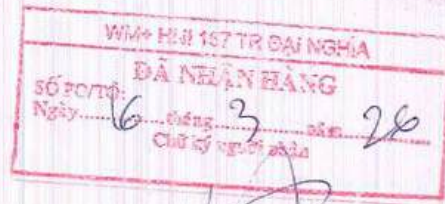 WM+ HNI 157 TR ĐẠI NGHĨA
ĐÃ NHẬN HÀNG
SỐ PO/TỜ:
Ngày 6 tháng 3 năm 26
Chữ ký người nhận